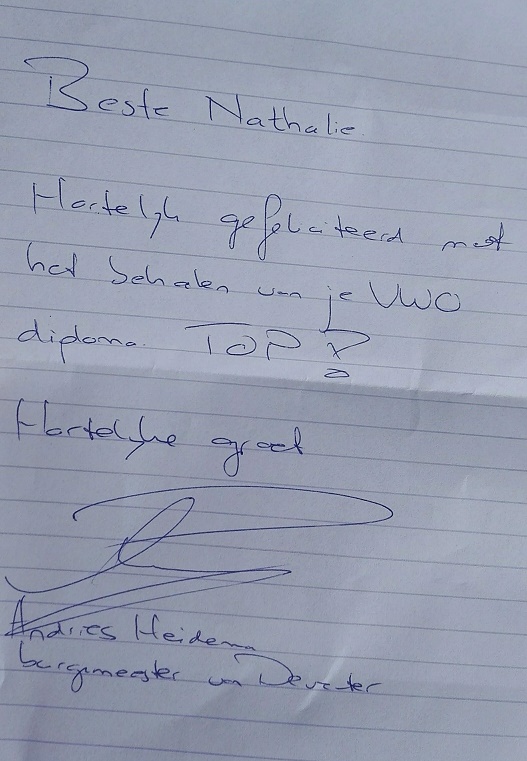 Beste Nathalie
Hartelijk gefeliciteerd met
het behalen van je VWO
diploma. TOP!
Hartelijke groet
Andries Heidema
burgemeester van Deventer